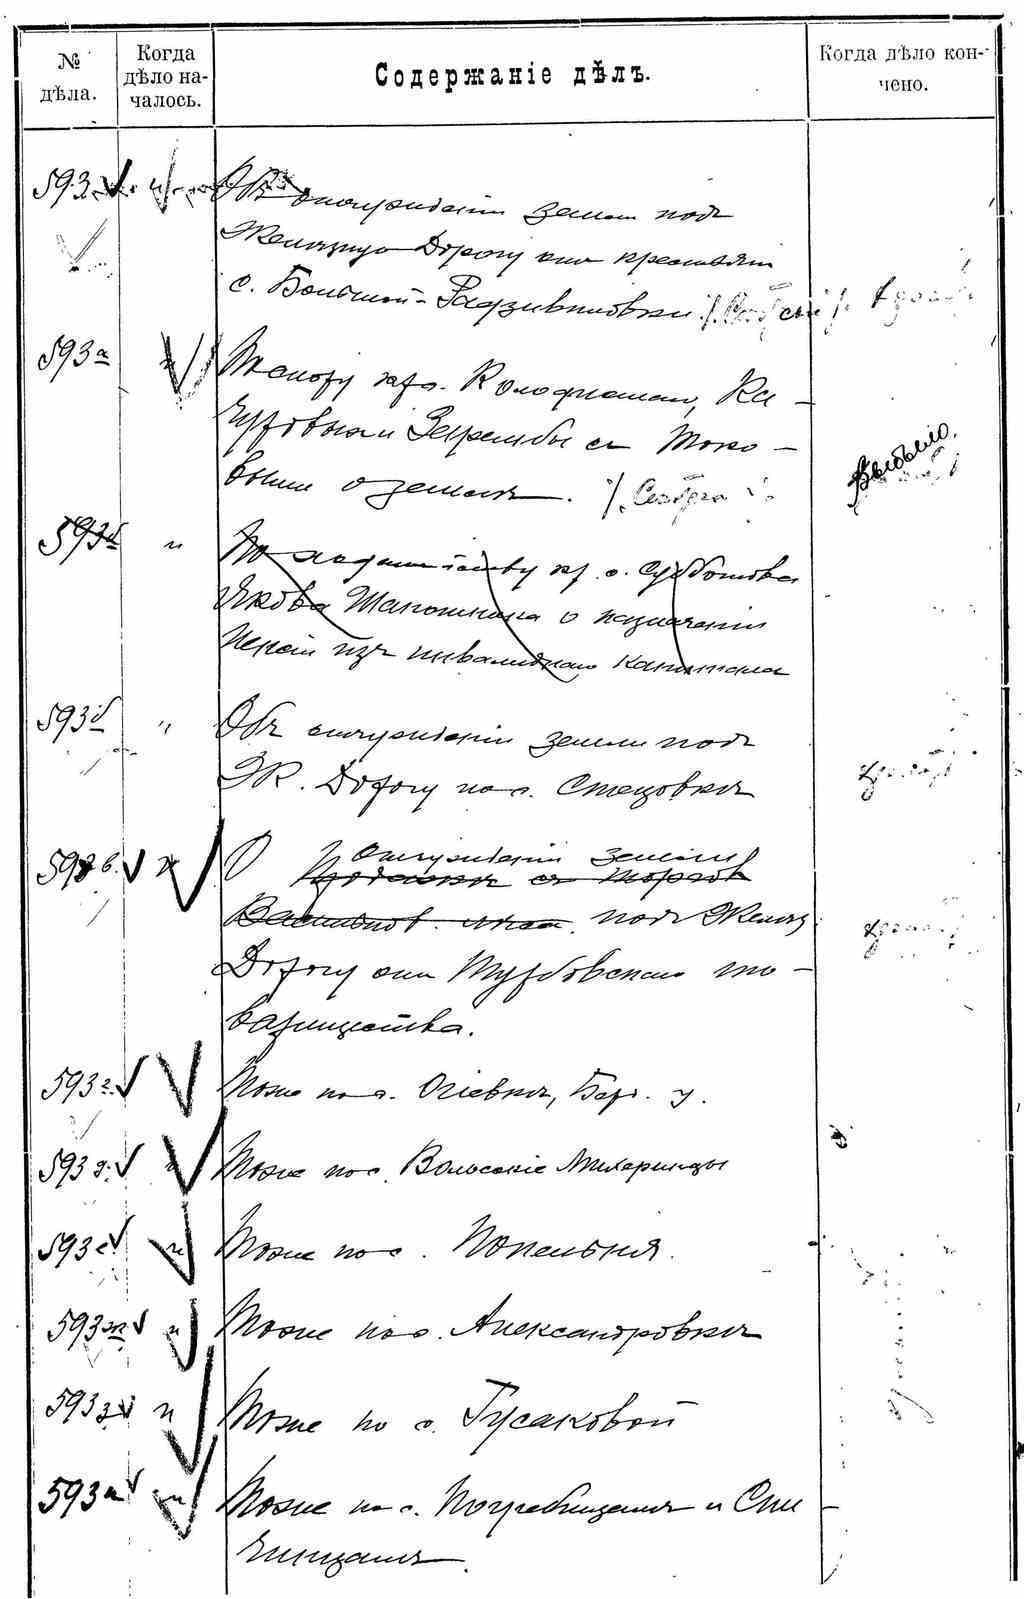 № дѣла.
Когда дѣло началось.
Содержаніе дѣлъ.
Когда дѣло кончено.
593
Объ отчужденіи земли подъ
Желѣзную Дорогу отъ крестьян
с. Большой-Радзивиловки
593а
По спору кр. с. Колодистаго, Ка-
и Зарембы съ Токо-
выми о землѣ.
Выбыло.
593б "
По ходатайству кр. с. Субботова
Якова Шапошника о назначеніи
пенсіи изъ инвалиднаго капитала
593б "
Объ отчужденіи земли подъ
Ж. Дорогу по с. Стецовкѣ
593в. "
О отчужденіи земли
съ торговъ
подъ Желѣз
Дорогу отъ Турбовскаго то-
варищества.
593г.
Тоже по с. Огіевкѣ, Бер. у.
593д. "
Тоже по с. Вольскіе Михеринцы
593е "
Тоже по с. Попельня.
593ж "
Тоже по с. Александровкѣ
593з "
Тоже по с. Гусаковой
593и "
Тоже по с. Погребищамъ и Спи-
чинцамъ.